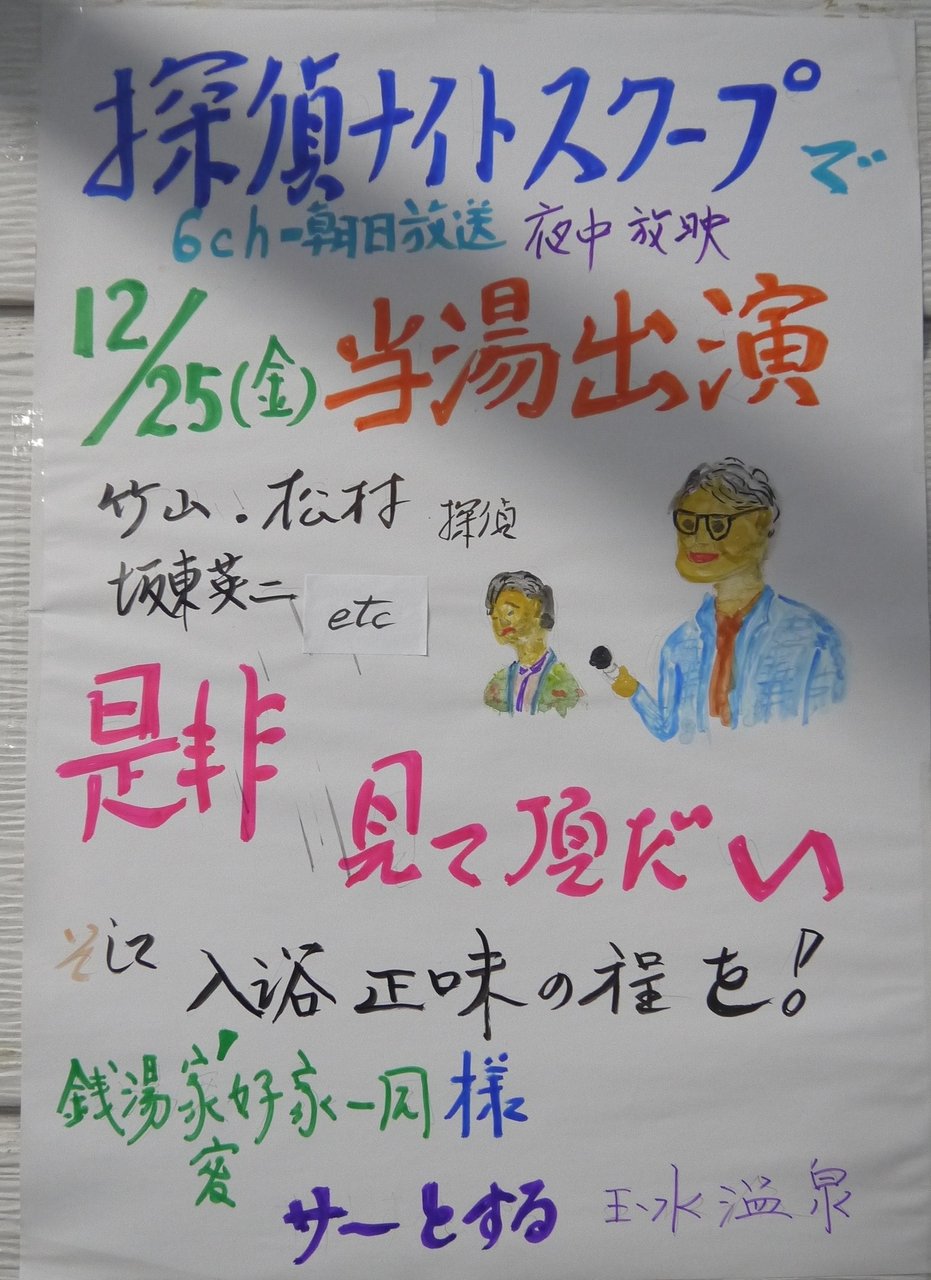 探偵ナイトスクープで
6ch-朝日放送 夜中放映
12/25(金) 当湯出演
竹山・松村 探偵
坂東英二 etc
是非
見て頂だい
そして 入浴正味の程を!
銭湯家好家一同様
変
サーとする 玉水温泉